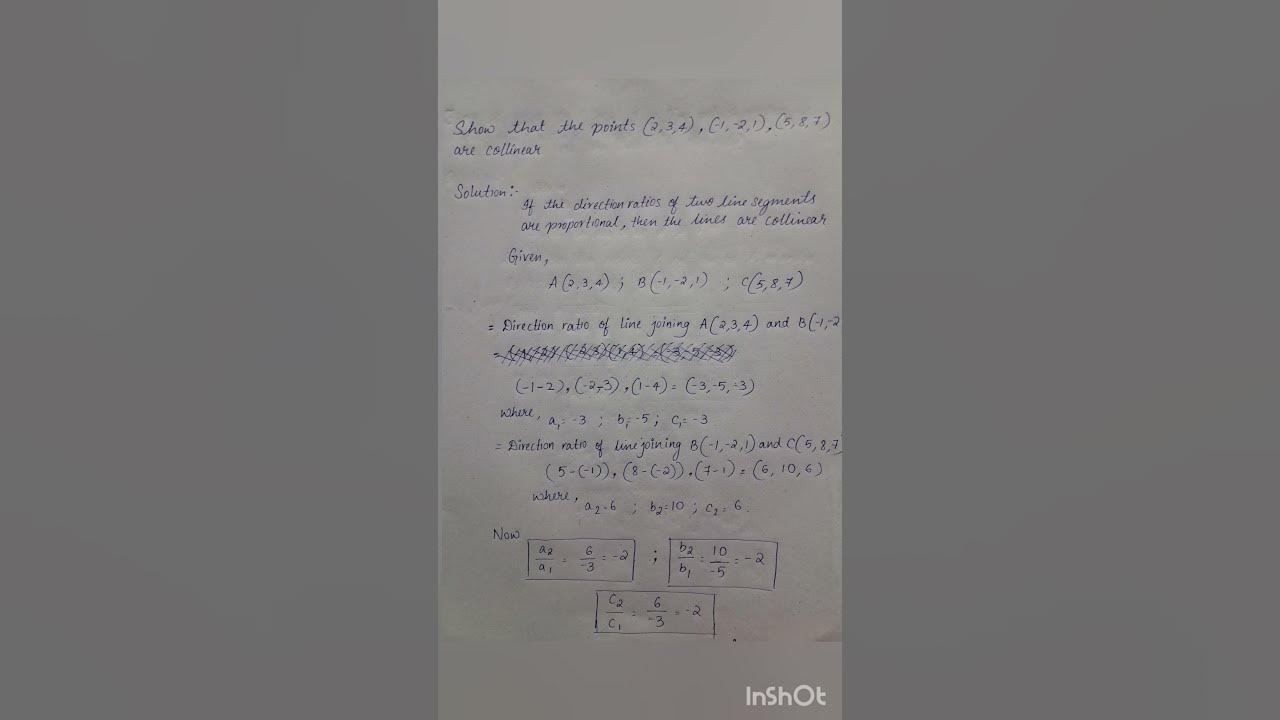 Show that the points (2,3,4), (-1,-2,1), (5,8,7)
are collinear
Solution:-
If the direction ratios of two line segments
are proportional, then the lines are collinear
Given,
A(2,3,4) ; B(-1,-2,1) ; C(5,8,7)
= Direction ratio of line joining A(2,3,4) and B(-1,-2
(-1-2), (-2-3), (1-4) = (-3,-5,-3)
where, a₁= -3 ; b₁= -5 ; c₁= -3
= Direction ratio of line joining B(-1,-2,1) and C(5,8,7)
(5-(-1)), (8-(-2)), (7-1) = (6, 10, 6)
where, a₂=6 ; b₂=10 ; c₂= 6.
Now
a₂/a₁ = 6/-3 = -2 ; b₂/b₁ = 10/-5 = -2
c₂/c₁ = 6/-3 = -2
InShOt